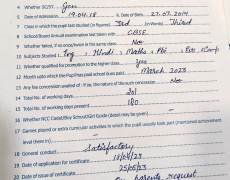 4 Whether SC/ST. Yes
5 Date of Admission. 19.04.18 6. Date of Birth. 27.07.2014
7 Class in which the pupil last studied (in figures). 3rd (in words) Third
8 School/Board Annual examination last taken. CBSE
9 Whether failed, if so once/twice in the same class. No
10 Subjects Studied 1. Eng. Hindi Maths Comp
11 Whether qualified for promotion to the higher class. Yes
12 Month upto which the Pupil has paid school dues March 2023
13 Any fee concession availed of: If so, the nature of the such concession No
14 Total No. of working days. 201
15 Total No. of working days present 180
16 Whether NCC Cadet/Boy Scout/Girl Guide (detail may be given)
17 Games played or extra curricular activities in which the pupil usually took part (mentioned achievement
level there in)
18 General conduct Satisfactory
19 Date of application for certificate
20 Date of issue of certificate
parents request